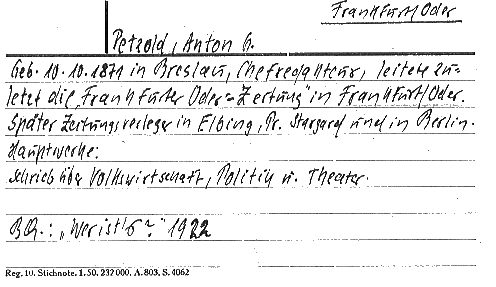 Frankfurt/Oder
Petzold, Anton G.
Geb. 10.10.1871 in Breslau, Chefredakteur, leitete zu-
letzt die "Frankfurter Oder=Zeitung" in Frankfurt/Oder.
Später Zeitungsverleger in Elbing, Pr. Stargard und in Berlin.
Hauptwerke:
schrieb über Volkswirtschaft, Politik u. Theater.
BQ.: „Wer ist's?" 1922
Reg. 10. Stichnote. 1. 50. 232000. A. 803. S. 4062